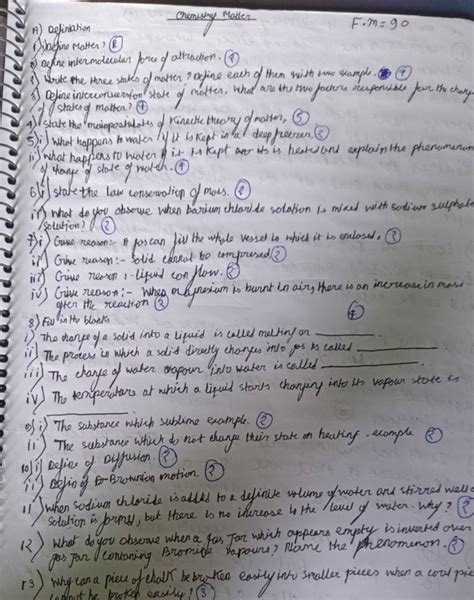 Chemistry Matter
F.M = 90
A) Definiation
i) Define Matter? (2)
2) Define intermolecular force of attraction. (4)
2) Write the three states of matter? Define each of them with two example. (4)
3) Define interconversion state of matter, What are the two factors responsible for the change
of states of matter? (4)
4) State the main postulates of Kinetic theory of matter, (5)
5) i) What happens to water if it is Kept in a deep freezer. (2)
ii) What happens to water if it is Kept is heated and explain the phenomenon
of change of state of water. (4)
6) i) State the law conservation of mass. (2)
ii) What do you observe when barium chloride solution is mixed with sodium sulphate
solution? (2)
7) i) Give reason:- A gas can fill the whole vessel in which it is enclosed. (2)
ii) Give reason:- Solid cannot be compressed (2)
iii) Give reason:- liquid can flow. (2)
iv) Give reason:- When magnesium is burnt in air, there is an increase in mass
after the reaction (2)
8) Fill in the blanks (4)
i) The change of a solid into a liquid is called melting or ________.
ii) The process in which a solid directly changes into gas is called ________
iii) The change of water vapour into water is called ________.
iv) The temperature at which a liquid starts changing into its vapour state is
________
9) i) The substance which sublime example. (2)
ii) The substance which do not change their state on heating. example (2)
10) i) Define of Diffusion. (2)
ii) Define of Brownian motion. (2)
11) When sodium chloride is added to a definite volume of water and stirred well a
solution is formed, but there is no increase in the level of water. Why? (2)
12) What do you observe when a gas Jar which appears empty is inverted over
gas Jar containing Bromine Vapours? Name the phenomenon. (2)
13) Why can a piece of chalk be broken easily into smaller pieces when a coal piece
cannot be broken easily? (3)